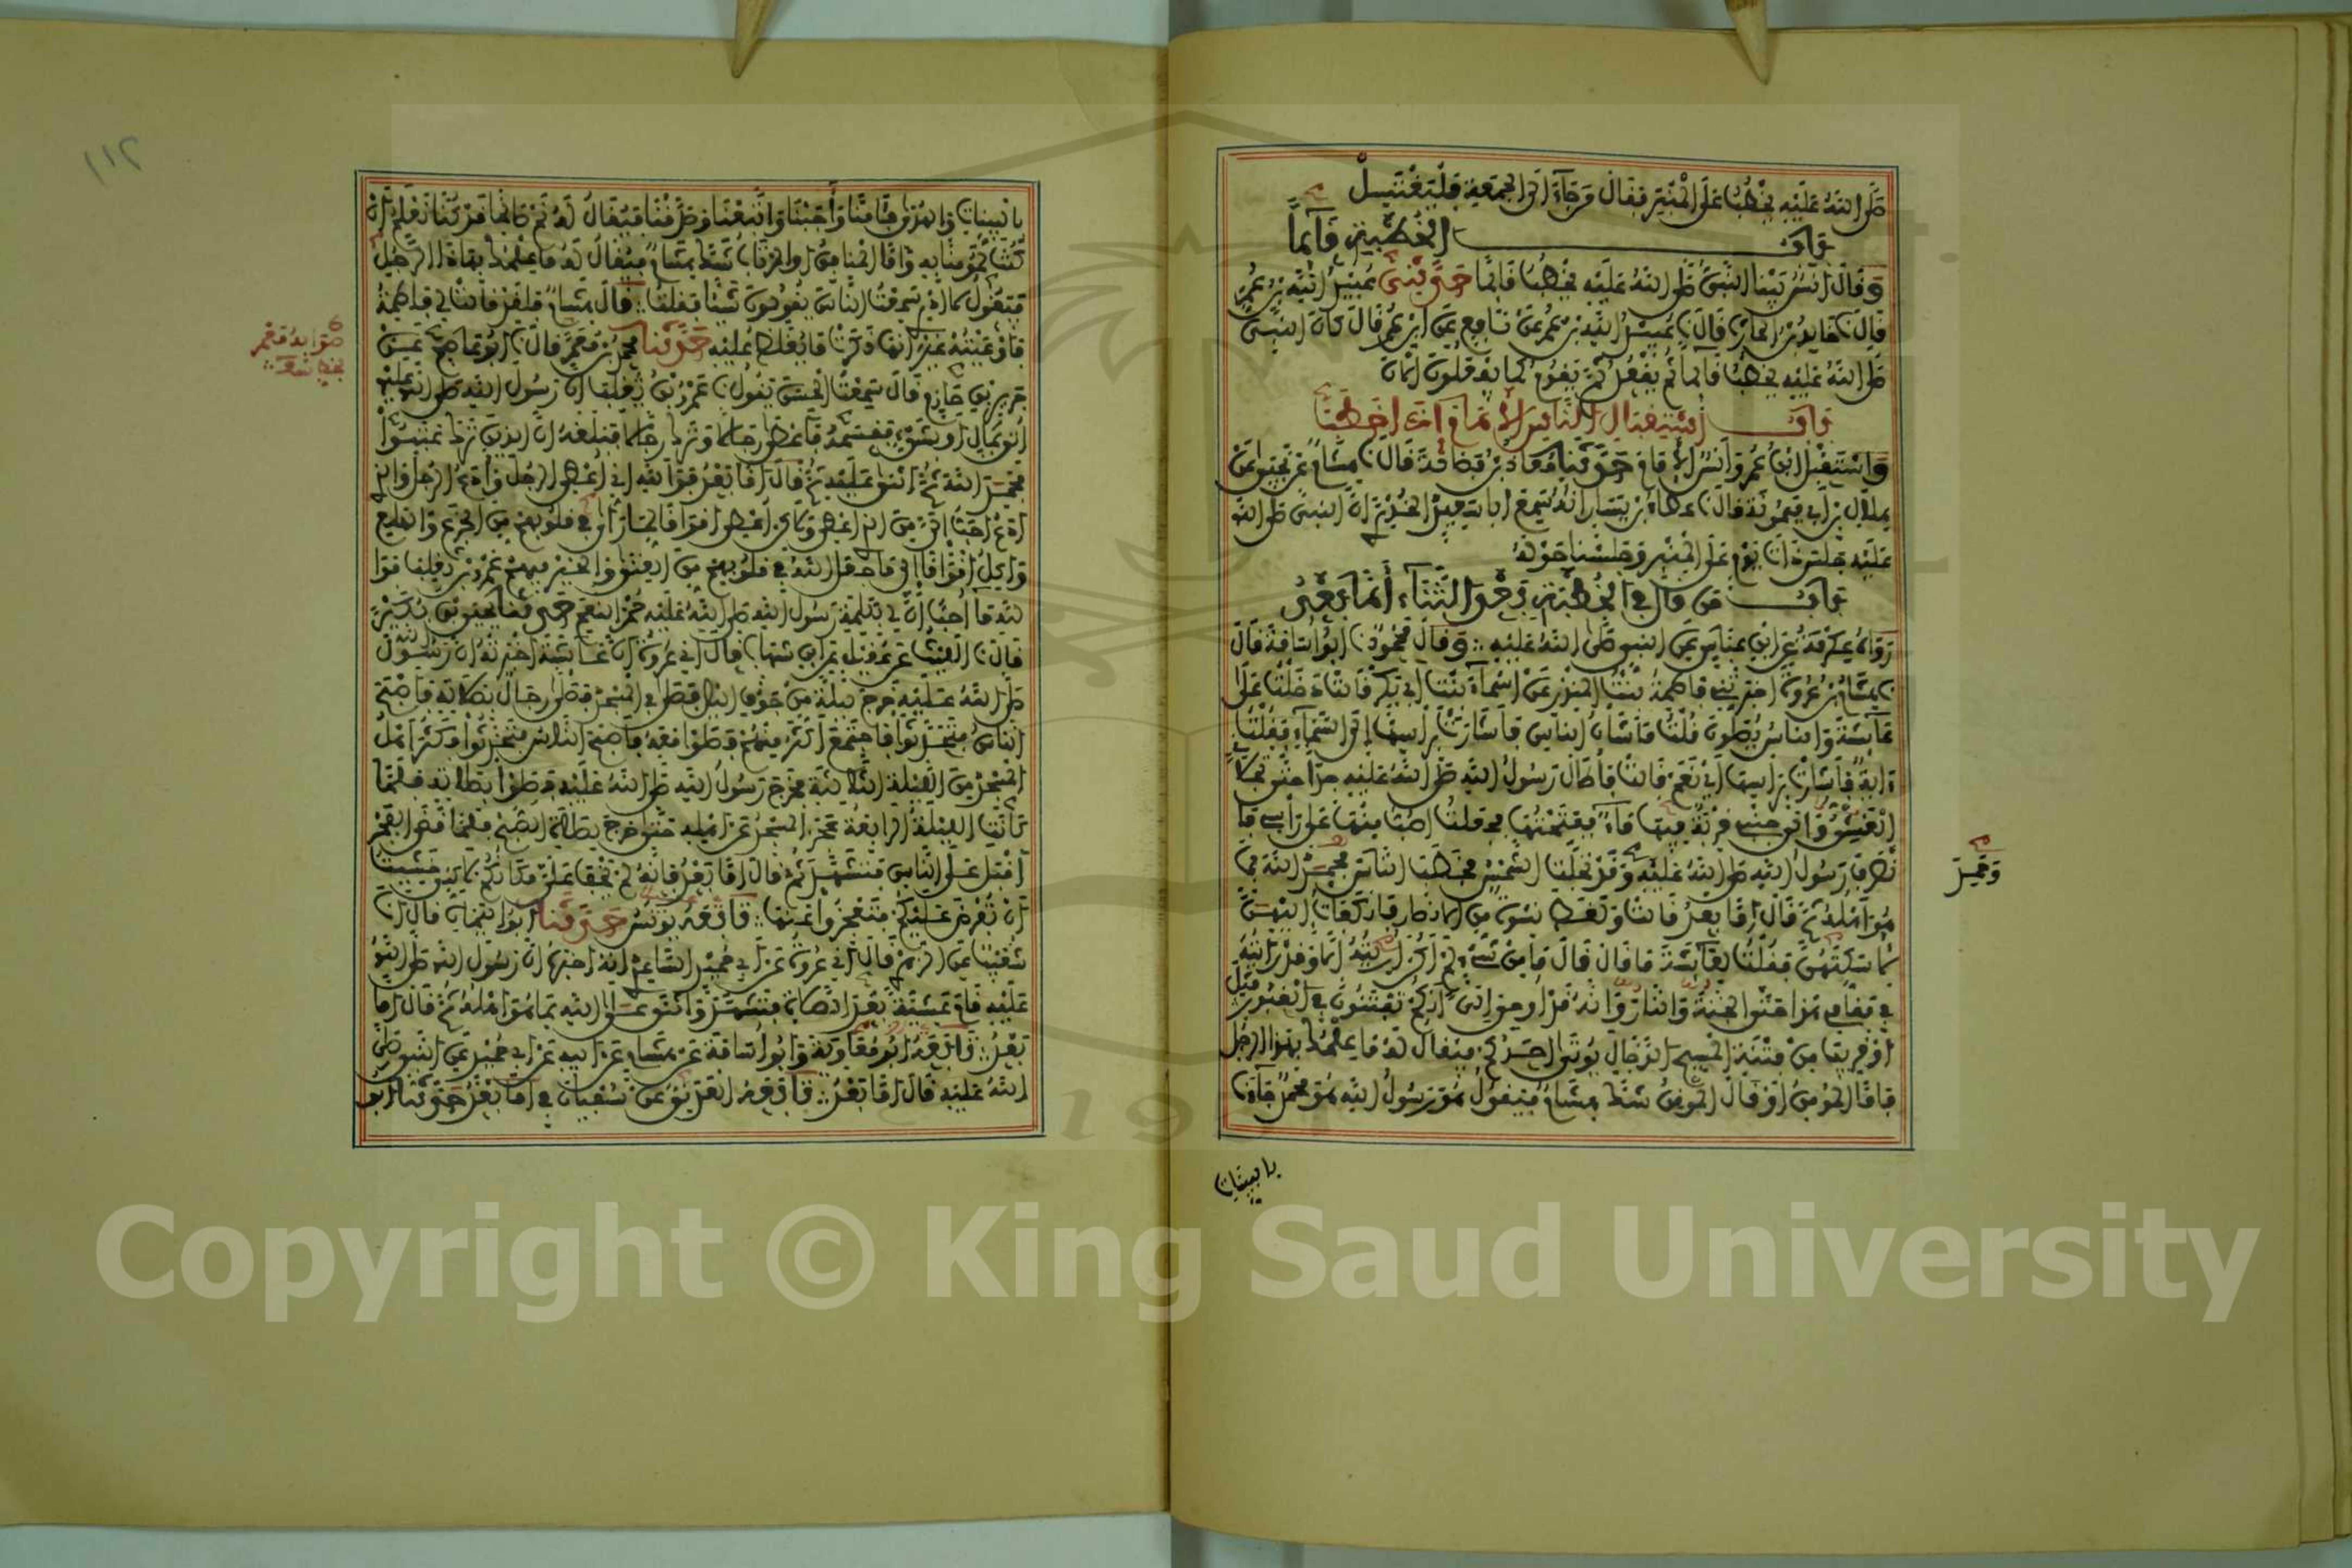 صلى الله عليه يخطب على المنبر فقال من جاء الى الجمعة فليغتسل
باب الخطبة قائما
وقال انس بينا النبي صلى الله عليه يخطب قائما حدثني عبيد الله بن عمر
قال نا خالد بن الحارث قال نا عبيد الله بن عمر عن نافع عن ابن عمر قال كان النبي
صلى الله عليه يخطب قائما ثم يقعد ثم يقوم كما يفعلون الان
باب استقبال الناس الامام اذا خطب
واستقبل ابن عمر وانس الامام حدثنا معاذ بن فضالة قال نا هشام عن يحيى عن
هلال بن ابي ميمونة قال نا عطاء بن يسار انه سمع ابا سعيد الخدري ان النبي صلى الله
عليه جلس ذات يوم على المنبر وجلسنا حوله
باب من قال في الخطبة بعد الثناء أما بعد
رواه عكرمة عن ابن عباس عن النبي صلى الله عليه وقال محمود نا ابو اسامة قال
نا هشام بن عروة اخبرتني فاطمة بنت المنذر عن اسماء بنت ابي بكر قالت دخلت على
عائشة والناس يصلون قلت ما شأن الناس فأشارت برأسها إلى السماء فقلت
ءاية فأشارت برأسها أي نعم قالت فأطال رسول الله صلى الله عليه جدا حتى تجلاني
الغشي والى جنبي قربة فيها ماء ففتحتها فجعلت اصب منها على رأسي
فانصرف رسول الله صلى الله عليه وقد تجلت الشمس فخطب الناس فحمد الله بما
هو أهله ثم قال أما بعد قالت ولغط نسوة من الانصار فانكفأت اليهن
لأسكتهن فقلت لعائشة ما قال قالت ما من شيء لم أكن أريته إلا وقد رأيته
في مقامي هذا حتى الجنة والنار وانه قد أوحي إلي أنكم تفتنون في القبور مثل
أو قريبا من فتنة المسيح الدجال يؤتى أحدكم فيقال له ما علمك بهذا الرجل
فأما المومن أو قال الموقن شك هشام فيقول هو رسول الله هو محمد جاءنا
بالبينات
وحمد
بالبينات والهدى فآمنا وأجبنا واتبعنا وصدقنا فيقال له نم صالحا قد كنا نعلم إن
كنت لمومنا به وأما المنافق أو المرتاب شك هشام فيقال له ما علمك بهذا الرجل
فيقول لا أدري سمعت الناس يقولون شيئا فقلت قال هشام فلقد قالت لي فاطمة
فأوعيته غير أنها ذكرت ما يغلظ عليه حدثنا محمد بن معمر قال نا ابو عاصم عن
جرير بن حازم قال سمعت الحسن يقول نا عمرو بن تغلب أن رسول الله صلى الله عليه
أتي بمال أو بشيء فقسمه فأعطى رجالا وترك رجالا فبلغه أن الذين ترك عتبوا
فحمد الله ثم أثنى عليه ثم قال أما بعد فوالله إني أعطي الرجل وأدع الرجل والذي
أدع أحب إلي من الذي أعطي ولكن أعطي أقواما لما أرى في قلوبهم من الجزع والهلع
وأكل أقواما إلى ما جعل الله في قلوبهم من الغنى والخير فيهم عمرو بن تغلب فوا
لله ما أحب أن لي بكلمة رسول الله صلى الله عليه حمر النعم حدثنا يحيى بن بكير
قال نا الليث عن عقيل عن ابن شهاب قال اني عروة أن عائشة أخبرته أن رسول الله
صلى الله عليه خرج ليلة من جوف الليل فصلى في المسجد فصلى رجال بصلاته فأصبح
الناس فتحدثوا فاجتمع أكثر منهم فصلوا معه فأصبح الناس فتحدثوا فكثر أهل
المسجد من الليلة الثالثة فخرج رسول الله صلى الله عليه فصلوا بصلاته فلما
كانت الليلة الرابعة عجز المسجد عن أهله حتى خرج لصلاة الصبح فلما قضى الفجر
أقبل على الناس فتشهد ثم قال أما بعد فإنه لم يخف علي مكانكم لكني خشيت
أن تفرض عليكم فتعجزوا عنها تابعه يونس حدثنا ابو اليمان قال انا
شعيب عن الزهري قال اني عروة عن ابي حميد الساعدي انه اخبره ان رسول الله صلى الله
عليه قام عشية بعد الصلاة فتشهد وأثنى على الله بما هو أهله ثم قال أما
بعد تابعه ابو معاوية وابو اسامة عن هشام عن ابيه عن ابي حميد عن النبي صلى
الله عليه قال أما بعد تابعه العدني عن سفيان في أما بعد حدثنا ابو
١١٢